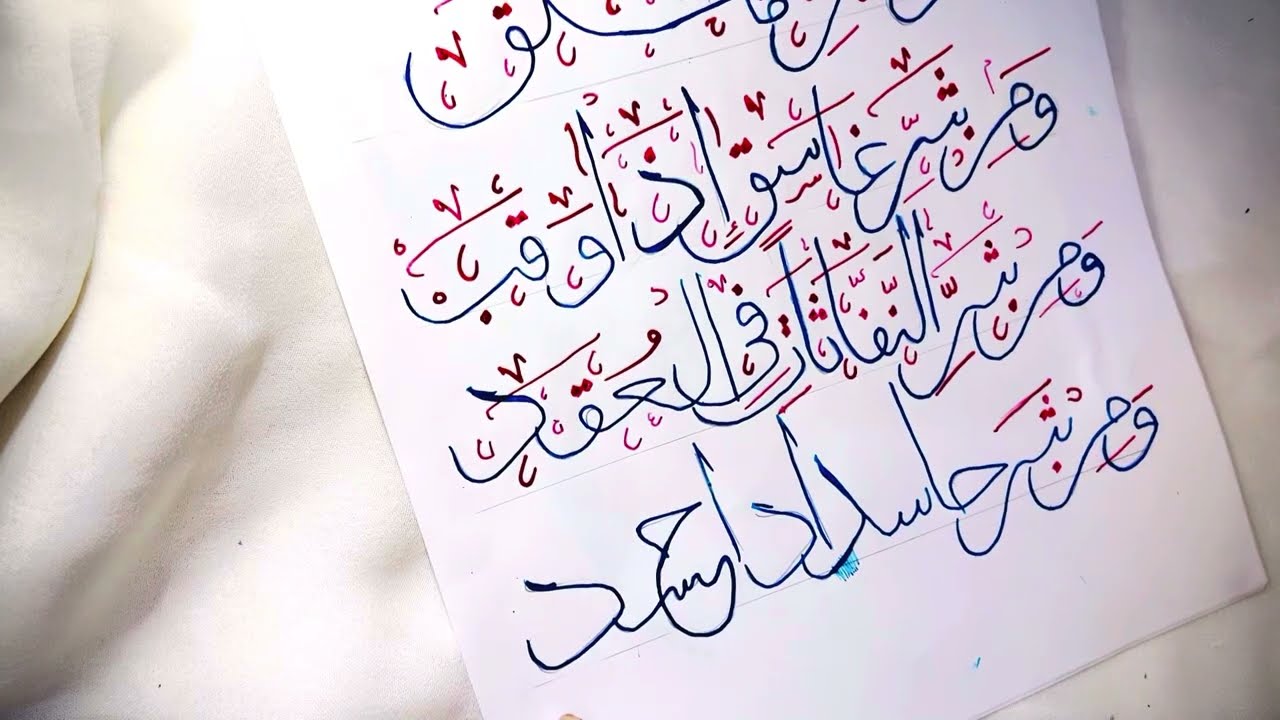 ومن شر غاسق اذا وقب
ومن شر النفاثات في العقد
ومن شر حاسد اذا حسد